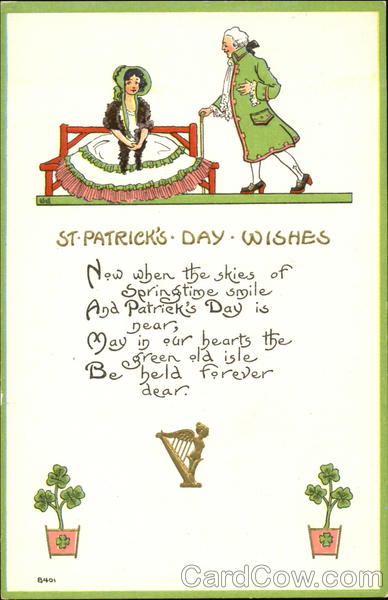 ST·PATRICK'S · DAY · WISHES
Now when the skies of
Springtime smile
And Patrick's Day is
near,
May in our hearts the
green old isle
Be held forever
dear.
8401
CardCow.com